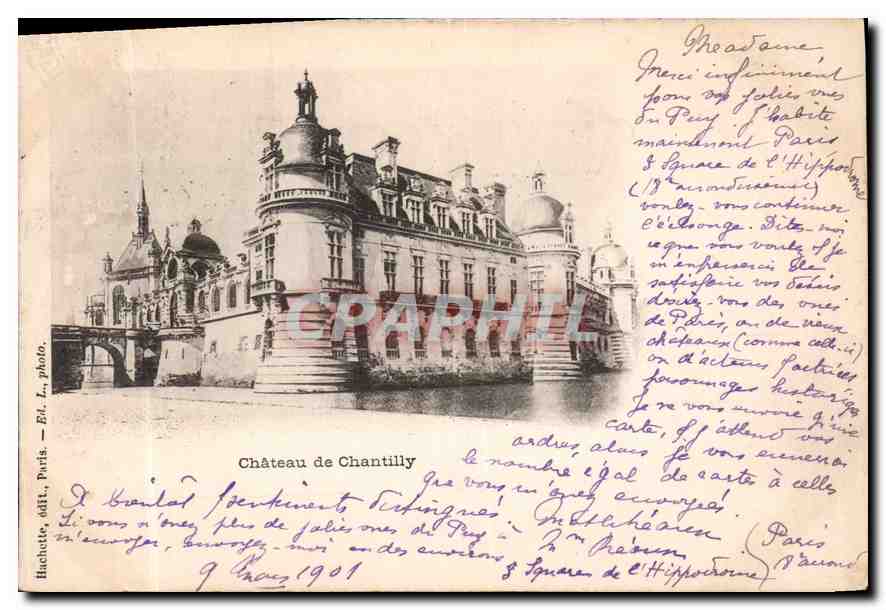 Madame
Merci infiniment
pour vos jolies vues
du Puy. J'habite
maintenant Paris
8 Square de l'Hippodrome
(18e arrondissement)
voulez-vous continuer
l'échange. Dites-moi
ce que vous voulez, et je
m'empresserai de
satisfaire vos désirs
désirez-vous des vues
de Paris, ou de vieux
châteaux (comme celle-ci)
ou d'acteurs, actrices
personnages historiques
Je ne vous envoie qu'une
carte, et j'attend vos
ordres, alors je vous enverrai
le nombre égal de cartes à celles
que vous m'avez envoyées
CPAPHIL
Château de Chantilly
A bientôt sentiments distingués
Si vous n'avez plus de jolies vues du Puy à
m'envoyer, envoyez-moi en des environs
9 Mars 1901
Mme
8 Square de l'Hippodrome
(Paris
18e arrond)
Hachette, édit., Paris. — Ed. L., photo.